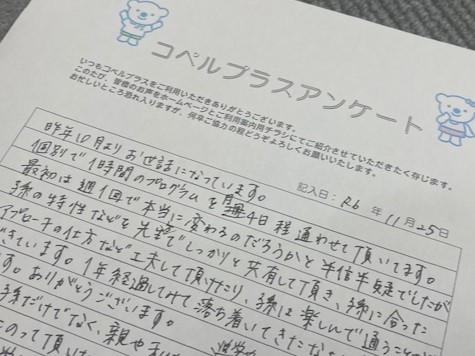 コペルプラスアンケート
いつもコペルプラスをご利用いただきありがとうございます。
このたび、皆様のお声をホームページとご利用案内用チラシにてご紹介させていただきたく存じます。
お忙しいところ恐れ入りますが、何卒ご協力の程どうぞよろしくお願いいたします。
記入日：R6 年 11月 25日
昨年10月よりお世話になっています。
個別で1時間のプログラムを月4日程 通わせて頂いてます。
最初は週1回で本当に変わるのだろうかと半信半疑でしたが
孫の特性などを先生でしっかりと共有して頂き、孫に合った
アプローチの仕方など工夫して頂けたり、孫は楽しんで通うことが
できています。1年経過してみて落ち着いてきたな
す。ありがとうございます。
孫だけでなく、親や